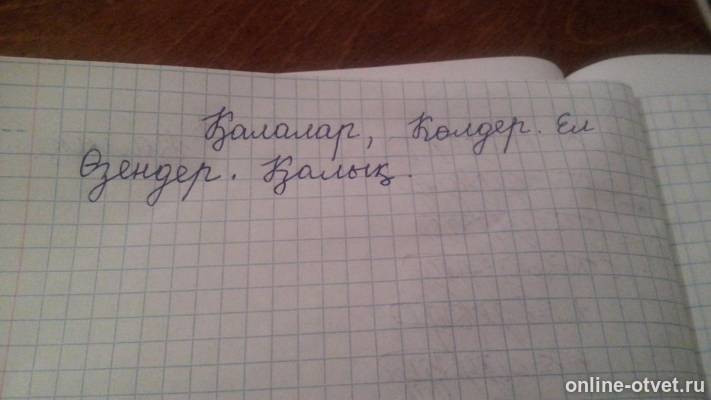 Қалалар, Көлдер. Ел
Өзендер. Қалық.
online-otvet.ru